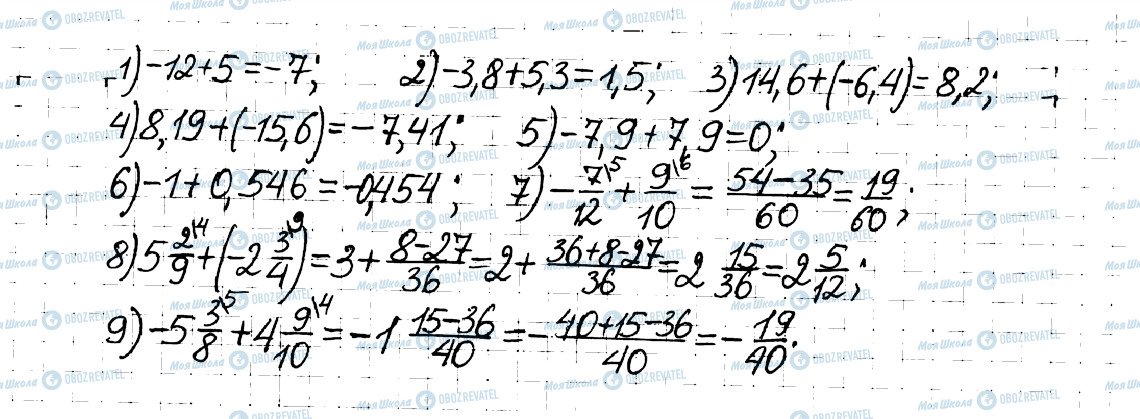 1) -12+5=-7; 2) -3,8+5,3=1,5; 3) 14,6+(-6,4)=8,2;
4) 8,19+(-15,6)=-7,41; 5) -7,9+7,9=0;
6) -1+0,546=-0,454; 7) -7\5/12 + 9\6/10 = (54-35)/60 = 19/60;
8) 5 2\4/9 + (-2 3\9/4) = 3 + (8-27)/36 = 2 + (36+8-27)/36 = 2 15/36 = 2 5/12;
9) -5 3\5/8 + 4 9\4/10 = -1 (15-36)/40 = -(40+15-36)/40 = -19/40.
Моя Школа OBOZREVATEL